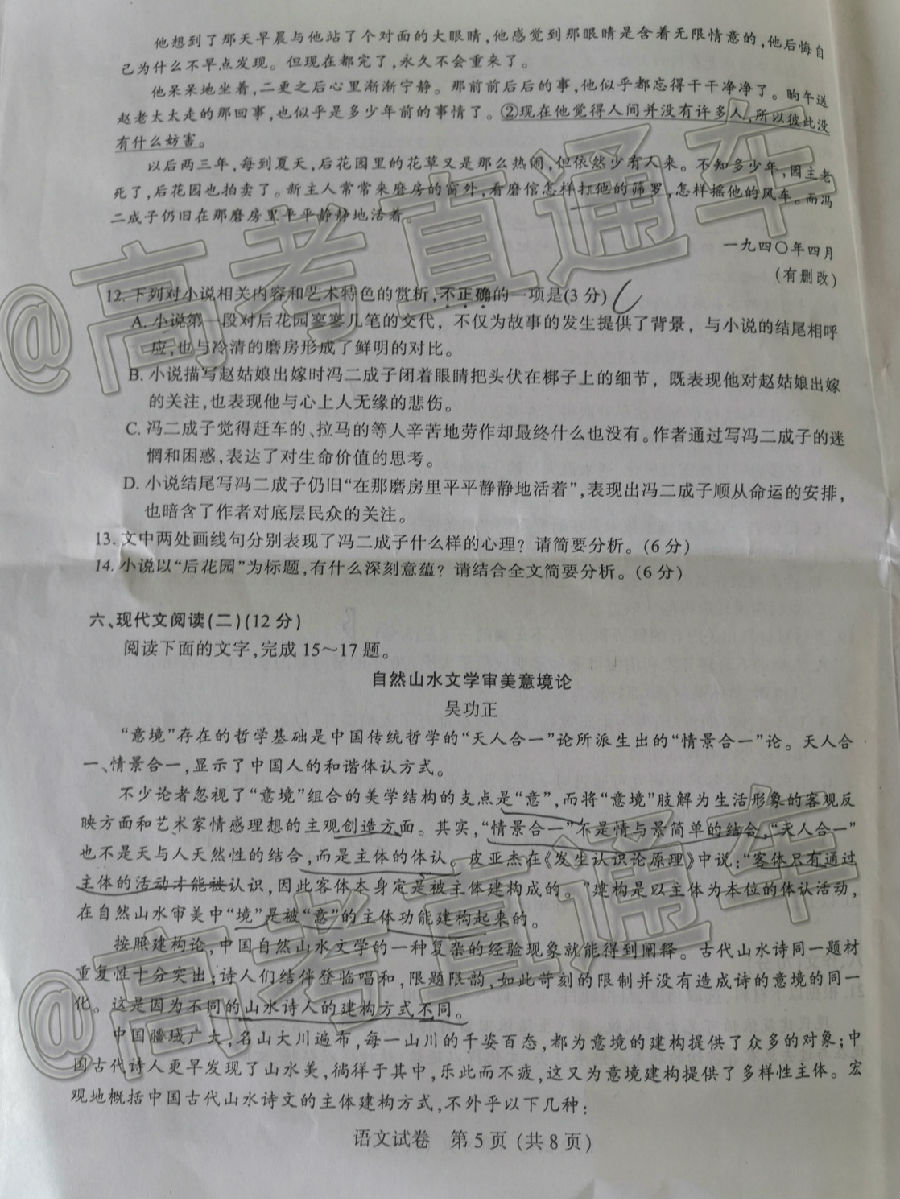 他想到了那天早晨与他站了个对面的大眼睛,他感觉到那眼睛是含着无限情意的,他后悔自
己为什么不早点发现。但现在都完了,永久不会重来了。
他呆呆地坐着,二更之后心里渐渐宁静。那前前后后的事,他似乎都忘得干干净净了。晌午送
赵老太太走的那回事,也似乎是多少年前的事情了。②现在他觉得人间并没有许多人,所以彼此没
有什么妨害。
以后两三年,每到夏天,后花园里的花草又是那么热闹,但依然少有人来。不知多少年,园主老
死了,后花园也拍卖了。新主人常常来磨房的窗外,看磨倌怎样打他的筛罗,怎样摇他的风车。而冯
二成子仍旧在那磨房里平平静静地活着。
一九四〇年四月
(有删改)
12.下列对小说相关内容和艺术特色的赏析,不正确的一项是(3分)
A.小说第一段对后花园寥寥几笔的交代,不仅为故事的发生提供了背景,与小说的结尾相呼
应,也与冷清的磨房形成了鲜明的对比。
B.小说描写赵姑娘出嫁时冯二成子闭着眼睛把头伏在梆子上的细节,既表现他对赵姑娘出嫁
的关注,也表现他与心上人无缘的悲伤。
C.冯二成子觉得赶车的、拉马的等人辛苦地劳作却最终什么也没有。作者通过写冯二成子的迷
惘和困惑,表达了对生命价值的思考。
D.小说结尾写冯二成子仍旧“在那磨房里平平静静地活着”,表现出冯二成子顺从命运的安排,
也暗含了作者对底层民众的关注。
13.文中两处画线句分别表现了冯二成子什么样的心理?请简要分析。(6分)
14.小说以“后花园”为标题,有什么深刻意蕴?请结合全文简要分析。(6分)
六、现代文阅读(二)(12分)
阅读下面的文字,完成15~17题。
自然山水文学审美意境论
吴功正
“意境”存在的哲学基础是中国传统哲学的“天人合一”论所派生出的“情景合一”论。天人合
一、情景合一,显示了中国人的和谐体认方式。
不少论者忽视了“意境”组合的美学结构的支点是“意”,而将“意境”肢解为生活形象的客观反
映方面和艺术家情感理想的主观创造方面。其实,“情景合一”不是情与景简单的结合,“天人合一”
也不是天与人天然性的结合,而是主体的体认。皮亚杰在《发生认识论原理》中说:“客体只有通过
主体的活动才能被认识,因此客体本身定是被主体建构成的。”建构是以主体为本位的体认活动,
在自然山水审美中“境”是被“意”的主体功能建构起来的。
按照建构论,中国自然山水文学的一种复杂的经验现象就能得到阐释。古代山水诗同一题材
重复性十分突出,诗人们结伴登临唱和,限题限韵,如此苛刻的限制并没有造成诗的意境的同一
化。这是因为不同的山水诗人的建构方式不同。
中国疆域广大,名山大川遍布,每一山川的千姿百态,都为意境的建构提供了众多的对象;中
国古代诗人更早发现了山水美,徜徉于其中,乐此而不疲,这又为意境建构提供了多样性主体。宏
观地概括中国古代山水诗文的主体建构方式,不外乎以下几种:
语文试卷 第5页(共8页)
@高考直通车
@高考直通车